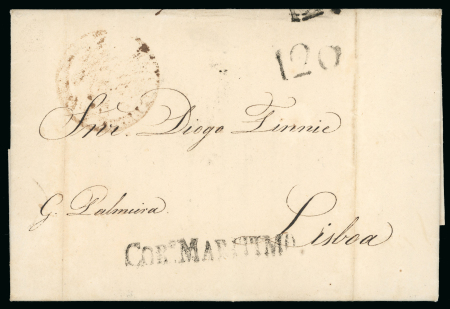 120
Snr. Diogo Tinnie
G. Palmeira.
Lisboa
CORº MARITIMO.